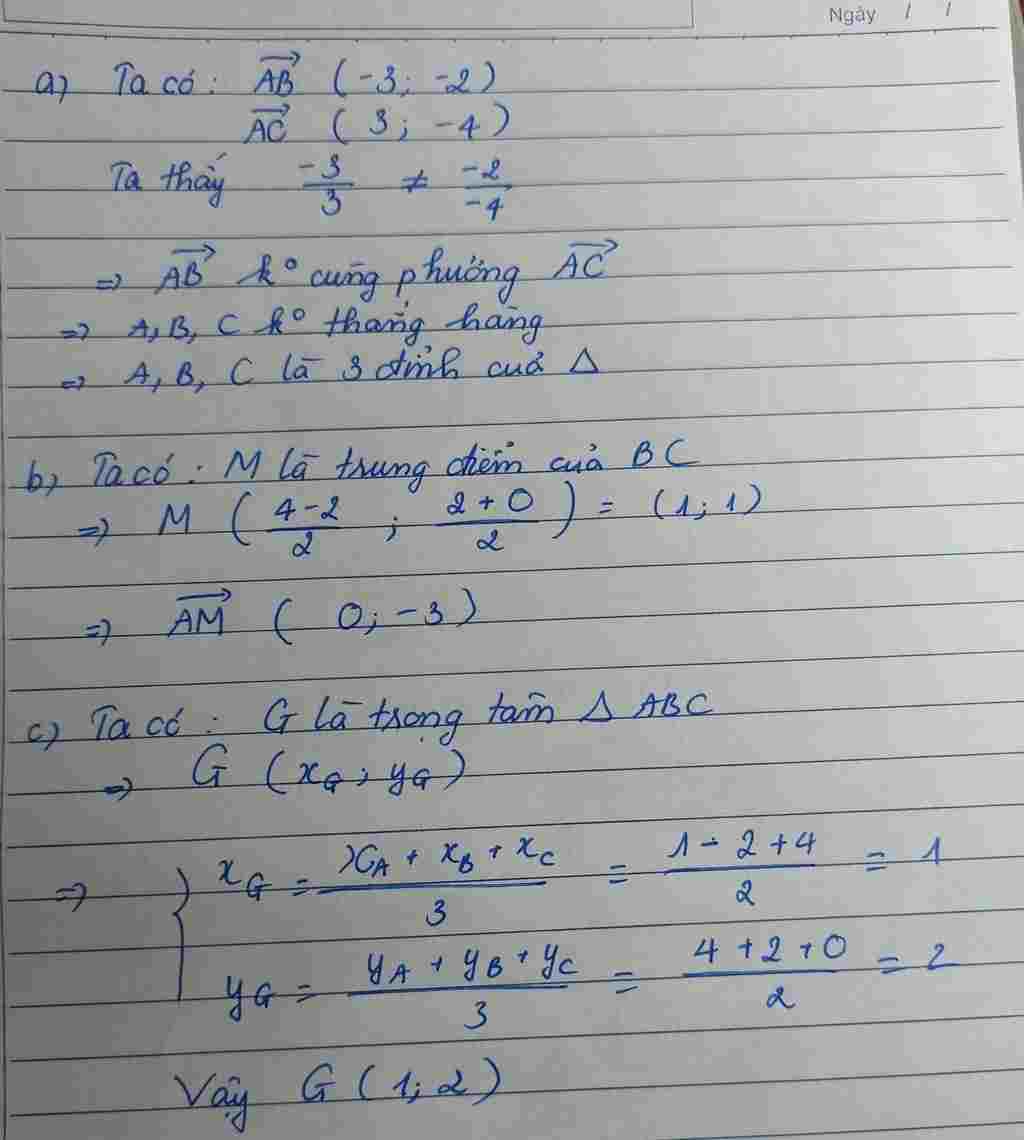 Ngày / /
a) Ta có: $\overrightarrow{AB}$ (-3; -2)
$\overrightarrow{AC}$ (3; -4)
Ta thấy $\frac{-3}{3} \neq \frac{-2}{-4}$
=> $\overrightarrow{AB}$ k° cùng phương $\overrightarrow{AC}$
=> A, B, C k° thẳng hàng
=> A, B, C là 3 đỉnh của Δ
b) Ta có: M là trung điểm của BC
=> M ($\frac{4-2}{2}$; $\frac{2+0}{2}$) = (1; 1)
=> $\overrightarrow{AM}$ (0; -3)
c) Ta có: G là trọng tâm Δ ABC
=> G ($x_G$; $y_G$)
=> { $x_G = \frac{x_A + x_B + x_C}{3} = \frac{1 - 2 + 4}{2} = 1$
$y_G = \frac{y_A + y_B + y_C}{3} = \frac{4 + 2 + 0}{2} = 2$
Vậy G (1; 2)